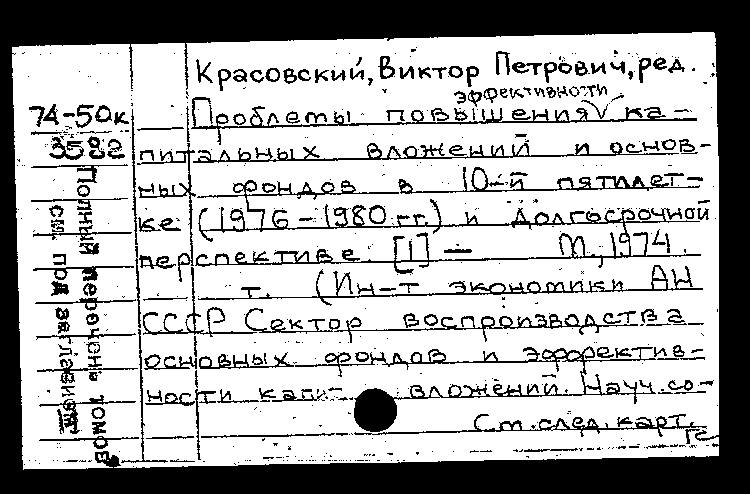 Красовский, Виктор Петрович, ред.
эффективности
74-50к
3582
Проблемы повышения ка-
питальных вложений и основ-
ных фондов в 10-й пятилет-
ке (1976-1980 гг.) и долгосрочной
перспективе. [1] — М., 1974.
т. (Ин-т экономики АН
СССР Сектор воспроизводства
основных фондов и эффектив-
ности капит. вложений. Науч. со-
См. след. карт.
Полный перечень томов
см. под заглавием